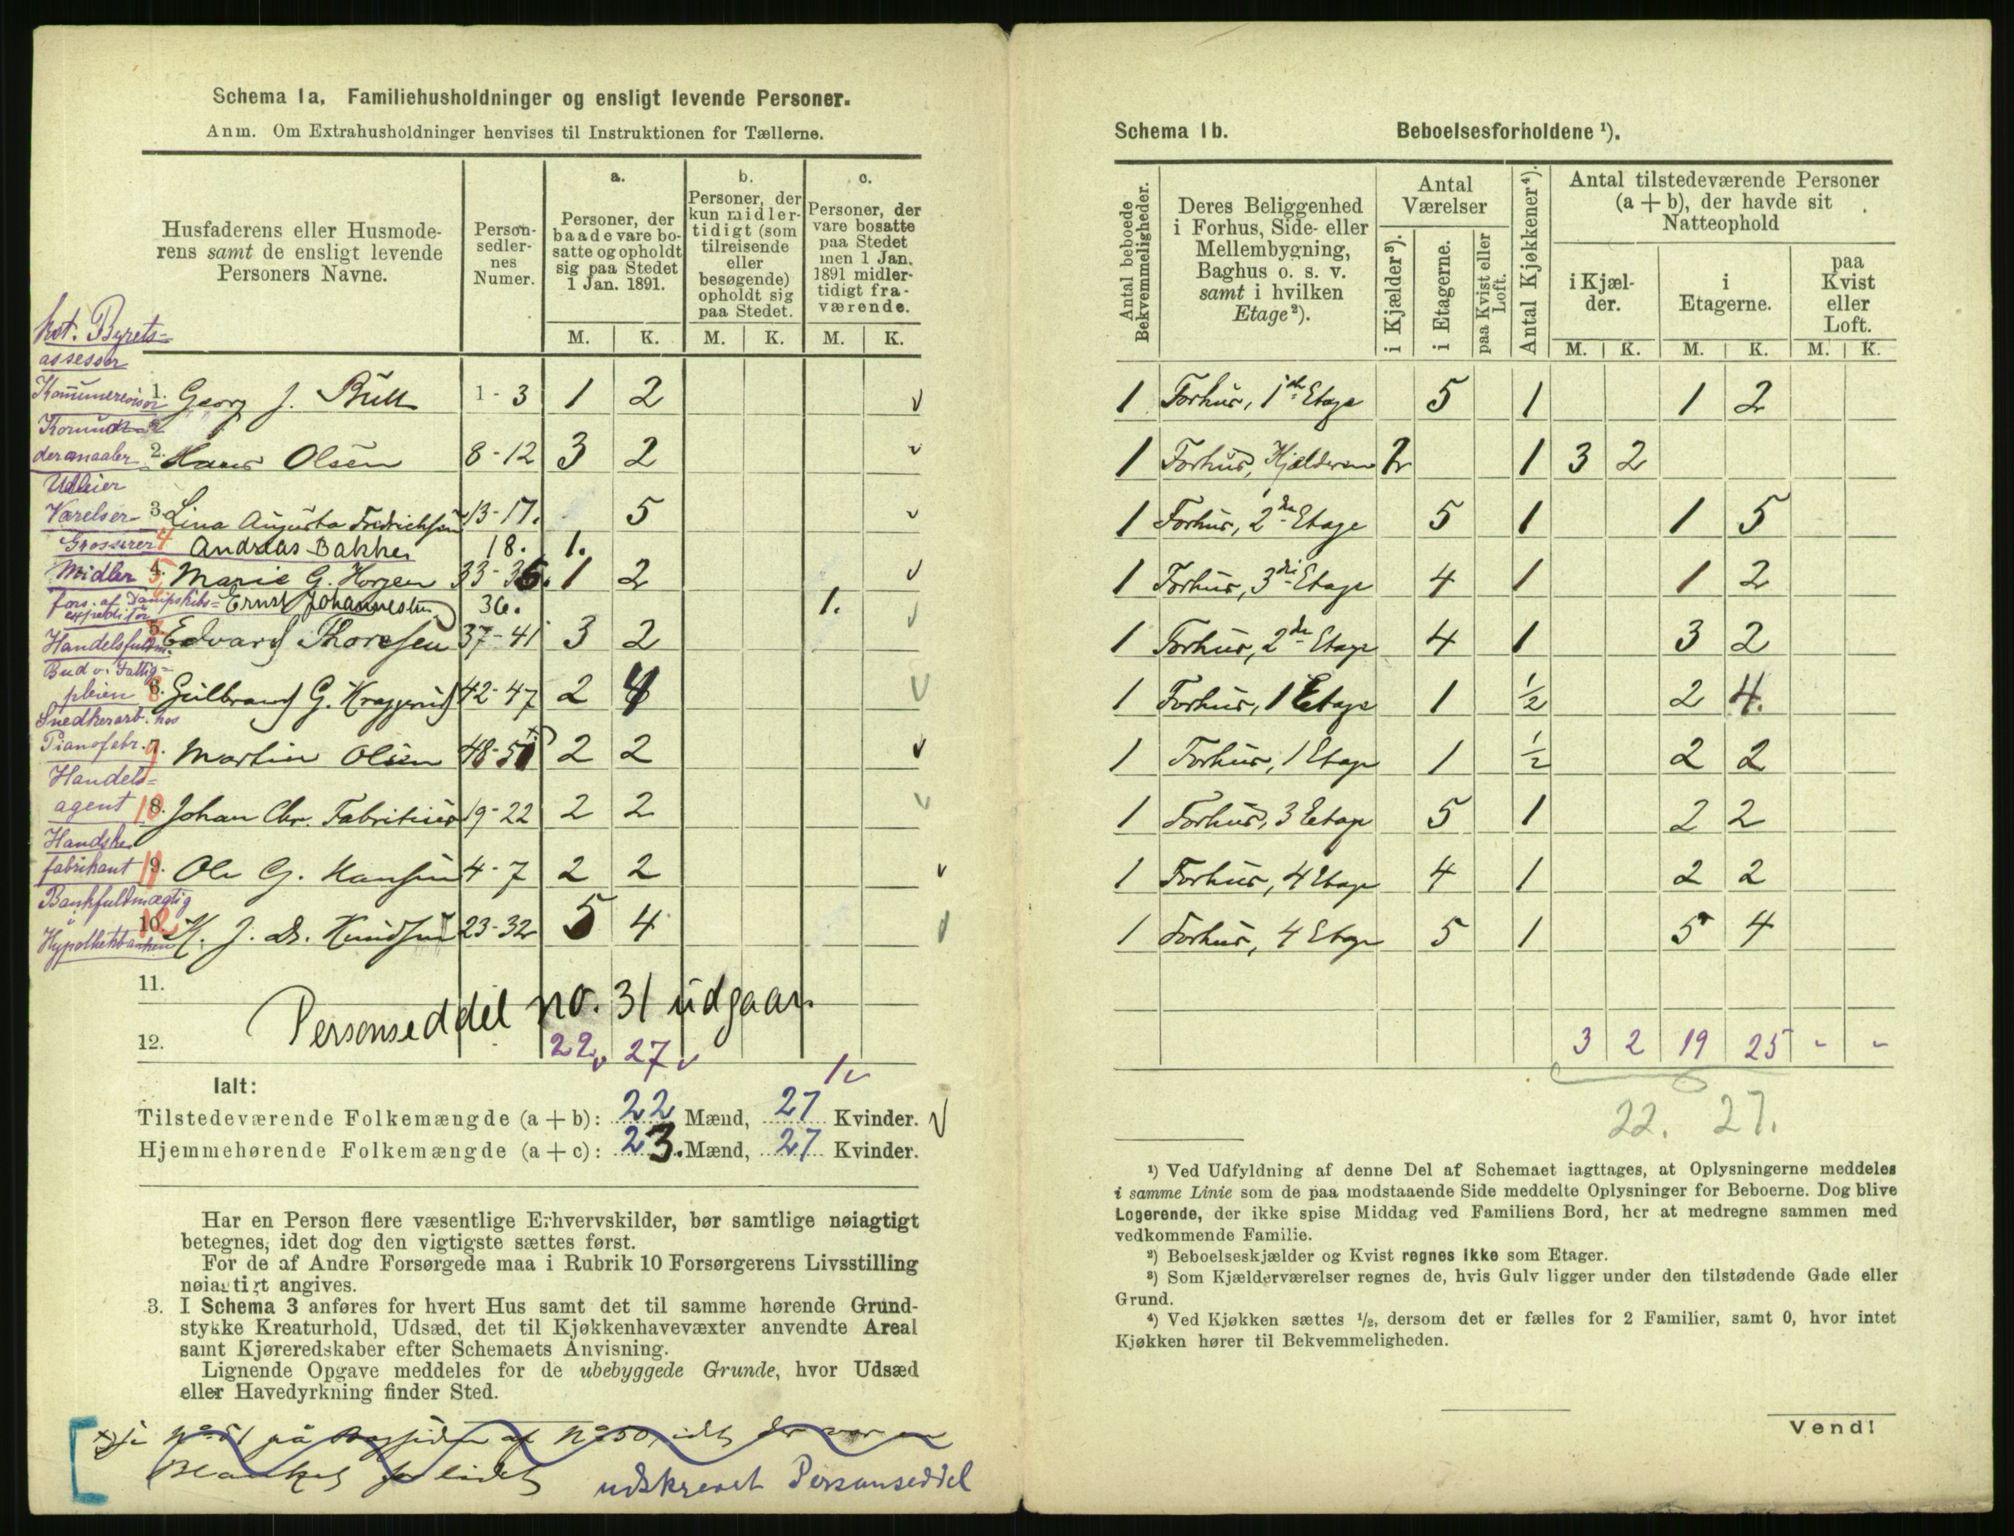 Schema 1a. Familiehusholdninger og ensligt levende Personer.
Anm. Om Extrahusholdninger henvises til Instruktionen for Tællerne.
Husfaderens eller Husmoderens samt de ensligt levende Personers Navne.
Personsedlernes Numer.
a. Personer, der baade vare bosatte og opholdt sig paa Stedet 1 Jan. 1891.
b. Personer, der kun midlertidigt (som tilreisende eller besøgende) opholdt sig paa Stedet.
c. Personer, der vare bosatte paa Stedet men 1 Jan. 1891 midlertidigt fraværende.
M. K. M. K. M. K.
kst. Byretsassessor
1. Georg J. Bull 1-3 1 2 v
Kommunerevisor
2. Hans Olsen 8-12 3 2 v
Udleier Værelser
3. Lina Augusta Fredrichsen 13-17. 5 v
Grosserer 4 Andreas Bakke 18. 1.
Midler 4. 5 Marie G. Horjen 33-35. 1 2 v
fors. af Dampskibsexpeditør Ernst Johannesen 36. 1.
Handelsfuldm. 5. Edvard Thoresen 37-41 3 2 v
Bud v. Fattigpleien 6. 8 Gulbrand G. Kraggerud 42-47 2 4 v
Snedkerarb. hos Pianofabr.
7. 9 Martin Olsen 48-51 2 2 v
Handelsagent 10 8. Johan Chr. Fabritius 19-22 2 2 v
Handskefabrikant 11 9. Ole G. Hansen 4-7 2 2 v
Bankfuldmægtig i Hypothekbanken
10. 12 K. J. Dr. Knudsen 23-32 5 4 v
11.
Personseddel no. 31 udgaar.
12. 22 v 27 v
1 v
Ialt:
Tilstedeværende Folkemængde (a + b): 22 Mænd, 27 Kvinder. v
Hjemmehørende Folkemængde (a + c): 23. Mænd, 27 Kvinder.
Har en Person flere væsentlige Erhvervskilder, bør samtlige nøiagtigt
betegnes, idet dog den vigtigste sættes først.
For de af Andre Forsørgede maa i Rubrik 10 Forsørgerens Livsstilling
nøiagtigt angives.
3. I Schema 3 anføres for hvert Hus samt det til samme hørende Grund-
stykke Kreaturhold, Udsæd, det til Kjøkkenhavevæxter anvendte Areal
samt Kjøreredskaber efter Schemaets Anvisning.
Lignende Opgave meddeles for de ubebyggede Grunde, hvor Udsæd
eller Havedyrkning finder Sted.
No 51 på Bagsiden af No 50, idet der var en
Blanket for lidet udskrevet Personseddel
Schema 1b. Beboelsesforholdene ¹).
Antal beboede Bekvemmeligheder.
Deres Beliggenhed i Forhus, Side- eller Mellembygning, Baghus o. s. v. samt i hvilken Etage²).
Antal Værelser
i Kjælder³).
i Etagerne.
paa Kvist eller Loft.
Antal Kjøkkener⁴).
Antal tilstedeværende Personer (a + b), der havde sit Natteophold
i Kjælder.
i Etagerne.
paa Kvist eller Loft.
M. K. M. K. M. K.
1 Forhus, 1ste Etage 5 1 1 2
1 Forhus, Kjælderen 2 1 3 2
1 Forhus, 2den Etage 5 1 1 5
1 Forhus, 3die Etage 4 1 1 2
1 Forhus, 2den Etage 4 1 3 2
1 Forhus, 1 Etage 1 ½ 2 4.
1 Forhus, 1 Etage 1 ½ 2 2
1 Forhus, 3 Etage 5 1 2 2
1 Forhus, 4 Etage 4 1 2 2
1 Forhus, 4 Etage 5 1 5 4
3 2 19 25 - -
22. 27.
¹) Ved Udfyldning af denne Del af Schemaet iagttages, at Oplysningerne meddeles
i samme Linie som de paa modstaaende Side meddelte Oplysninger for Beboerne. Dog blive
Logerende, der ikke spise Middag ved Familiens Bord, her at medregne sammen med
vedkommende Familie.
²) Beboelseskjælder og Kvist regnes ikke som Etager.
³) Som Kjælderværelser regnes de, hvis Gulv ligger under den tilstødende Gade eller
Grund.
⁴) Ved Kjøkken sættes ½, dersom det er fælles for 2 Familier, samt 0, hvor intet
Kjøkken hører til Bekvemmeligheden.
Vend!